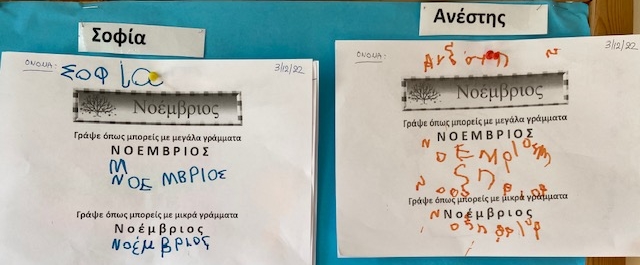 Σοφία
ΟΝΟΜΑ: 3/12/22
ΣΟΦία
Νοέμβριος
Γράψε όπως μπορείς με μεγάλα γράμματα
ΝΟΕΜΒΡΙΟΣ
Μ
ΝΟΕ ΜΒΡΙΟΣ
Γράψε όπως μπορείς με μικρά γράμματα
Νοέμβριος
Νοέμβριος
Ανέστης
ΟΝΟΜΑ: 3/12/22
Νοέμβριος
Γράψε όπως μπορείς με μεγάλα γράμματα
ΝΟΕΜΒΡΙΟΣ
Γράψε όπως μπορείς με μικρά γράμματα
Νοέμβριος